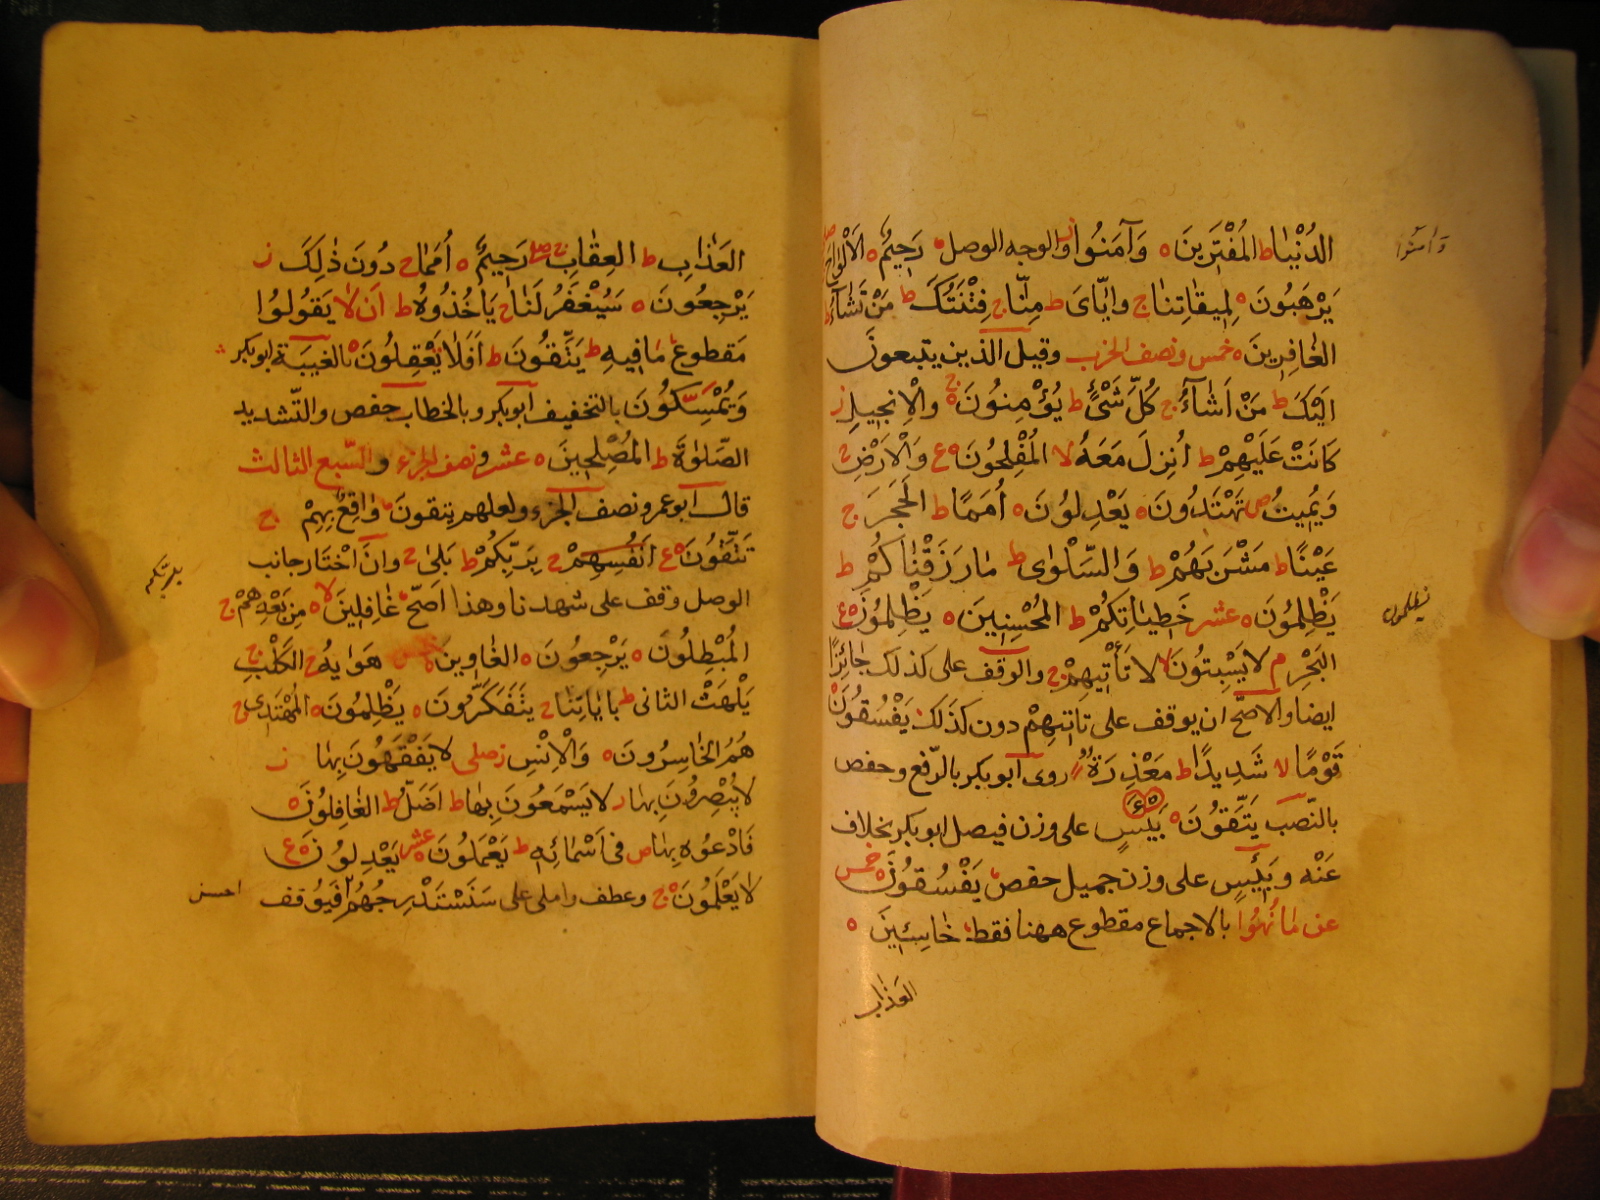 الدُّنْيَا ط المُفْتَرِينَ ه وَآمَنُوا ز والوجه الوصل ه رَحِيمٌ ه الْاَلْوَاحَ
وَاٰمَنُوا
يَرْهَبُونَ ه لِمِيقَاتِنَا ج وَاِيَّاىَ ط مِنَّا ج فِتْنَتُكَ ط مَنْ تَشَاءُ ط
الغَافِرِينَ ه خمس ونصف الحزب وقيل الذين يتبعون
اِلَيْكَ ط مَنْ اَشَاءُ ج كُلَّ شَىْءٍ ط يُؤْمِنُونَ ه ج وَالْاِنْجِيلِ ز
كَانَتْ عَلَيْهِمْ ط اُنْزِلَ مَعَهُ لا المُفْلِحُونَ ه ع وَالْاَرْضِ ج
وَيُمِيتُ ص تَهْتَدُونَ ه يَعْدِلُونَ ه اُمَمًا ط الحَجَرَ ج
عَيْنًا ط مَشْرَبَهُمْ ط وَالسَّلْوٰى ط مَا رَزَقْنَاكُمْ ط
يَظْلِمُونَ ه عشر خَطِيئَاتِكُمْ ط المُحْسِنِينَ ه يَظْلِمُونَ ه ع
يظلمون
البَحْرِ م لَا يَسْبِتُونَ لا لَا تَأْتِيهِمْ ج والوقف على كذلك جَائِزًا
ايضا والاصحّ ان يوقف على تاتيهمْ دون كذلك يَفْسُقُونَ ه
قَوْمًا لا شَدِيدًا ط مَعْذِرَةً روى ابو بكر بالرّفع وحفص
بالنّصب يَتَّقُونَ ه بَيْئَسٍ على وزن فيصل ابو بكر بخلاف
عَنْه وَبَئِيسٍ على وزن جميل حفص يَفْسُقُونَ ه خمس
عن مَا نُهُوا بالاجماع مقطوع ههنا فقط خَاسِئِينَ ه
العَذَاب
العَذَابِ ط العِقَابِ ج صلى رَحِيمٌ ه اُمَمًا ج دُونَ ذٰلِكَ ز
يَرْجِعُونَ ه سَيُغْفَرُ لَنَا ج يَأْخُذُوهُ ط اَنْ لَا يَقُولُوا
مَقطوع مَا فِيهِ ط يَتَّقُونَ ط اَفَلَا يَعْقِلُونَ ه بالغيبَة ابو بكر
وَتُمْسِكُونَ بالتخفيف ابو بكر وبالخطاب حفص والتّشديد
الصَّلوٰةَ ط المُصْلِحِينَ ه عشر ونصف الجزء والسّبع الثالث
قال ابو عمرو نصف الجزء ولعلهم يتقون وَاقِعٌ بِهِمْ ج
تَتَّقُونَ ه ع اَنْفُسِهِمْ ج بِرَبِّكُمْ ط بَلٰى ج وان اخْتَارَ جانب
بربكم
الوصل وقف على شهدنا وهذا اَصَحّ غَافِلِينَ ه لا مِنْ بَعْدِهِمْ ج
المُبْطِلُونَ ه يَرْجِعُونَ ه الغَاوِينَ ه خمس هَوَايهُ ج الكَلْبِ ج
يَلْهَثْ الثانى ط بِاٰيَاتِنَا ج يَتَفَكَّرُونَ ه يَظْلِمُونَ ه المُهْتَدِى ج
هُمُ الخَاسِرُونَ ه وَالْاِنْسِ ز صلى لَا يَفْقَهُونَ بِهَا ز
لَا يُبْصِرُونَ بِهَا ز لَا يَسْمَعُونَ بِهَا ط اَضَلُّ ط الغَافِلُونَ ه
فَادْعُوهُ بِهَا ص فى اَسْمَائِهِ ط يَعْمَلُونَ ه عشر يَعْدِلُونَ ه ع
لَا يَعْلَمُونَ ه ج وعطف واملى على سَنَسْتَدْرِجُهُمْ فَيُوقف
احسن